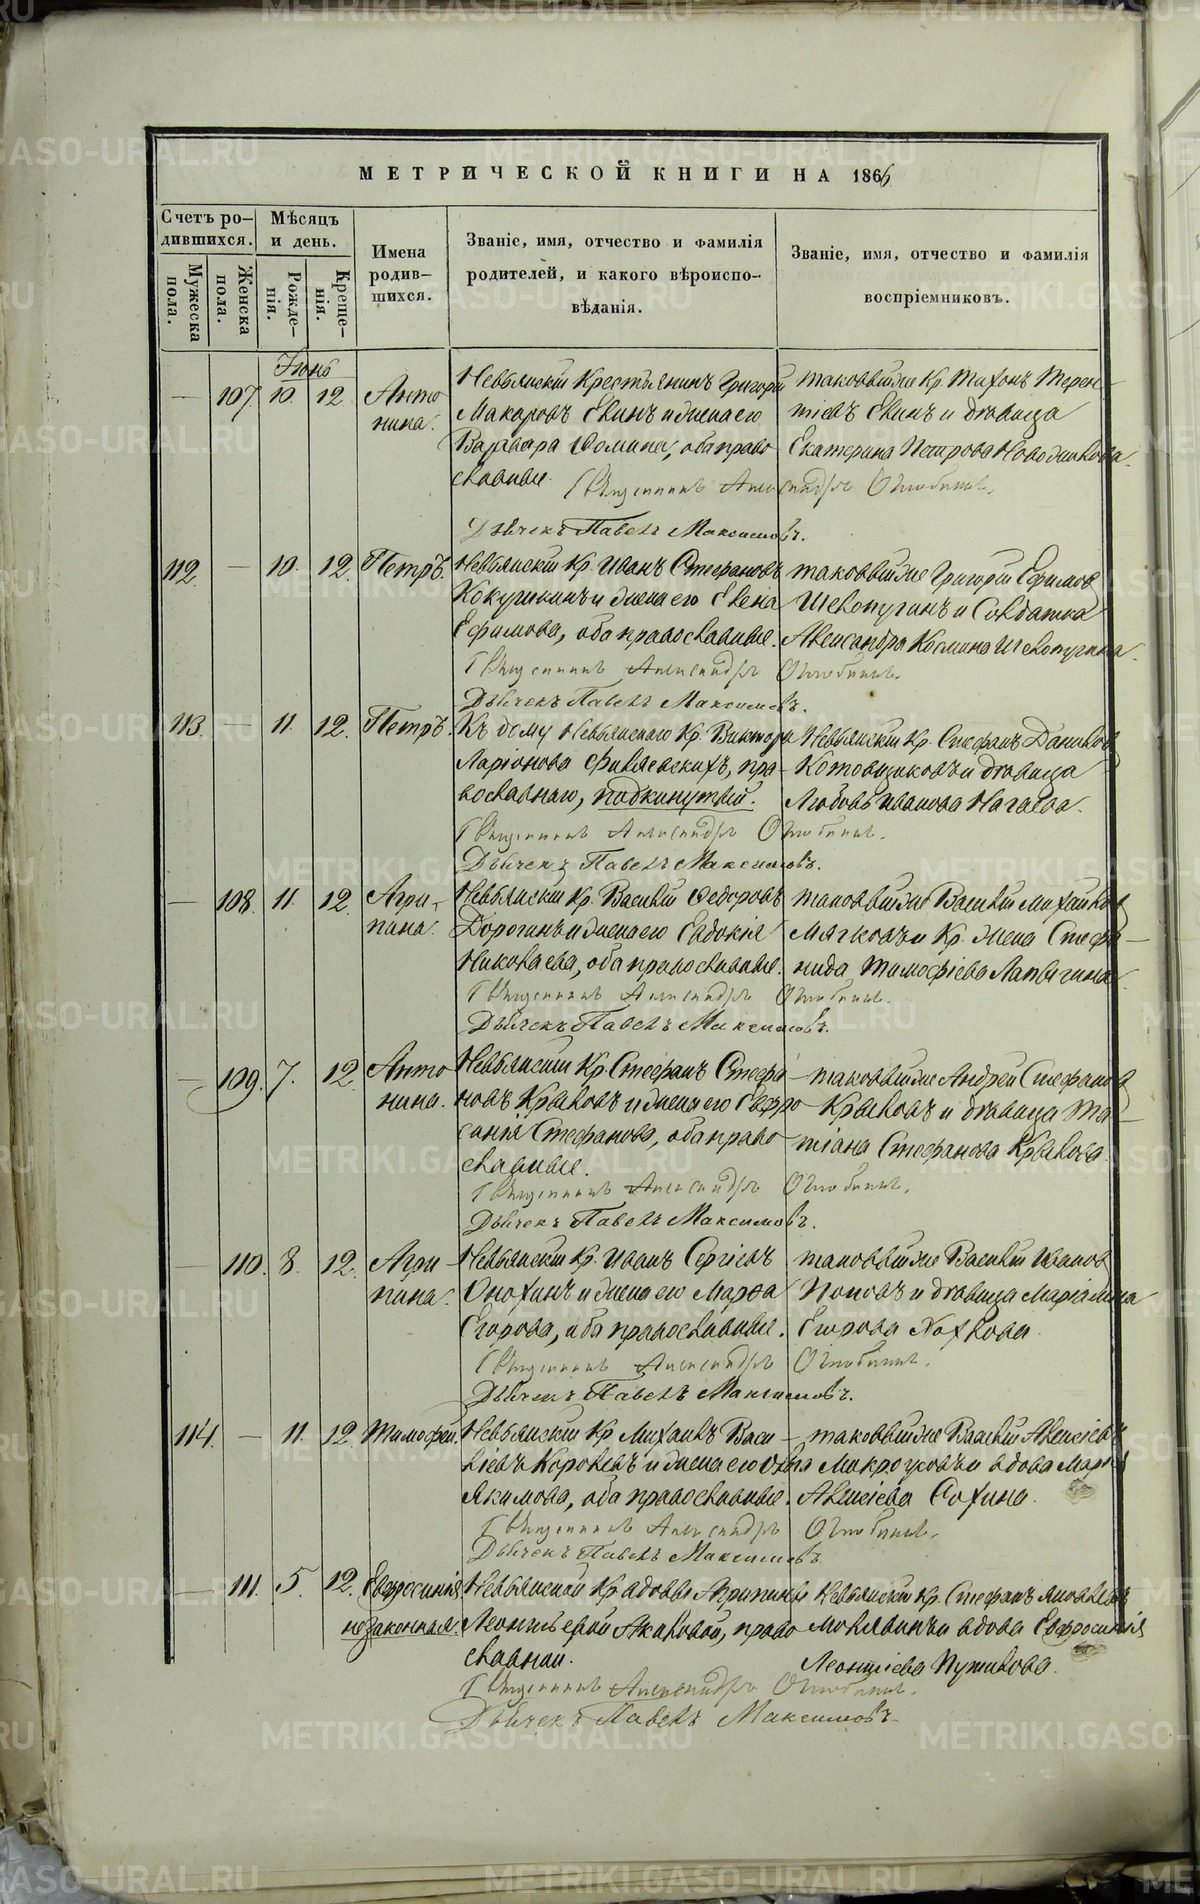 МЕТРИЧЕСКОЙ КНИГИ НА 186
Счетъ родившихся.
Мѣсяцъ и день.
Имена родившихся.
Званіе, имя, отчество и фамилія родителей, и какого вѣроисповѣданія.
Званіе, имя, отчество и фамилія воспріемниковъ.
Мужеска пола.
Женска пола.
Рожденія.
Крещенія.
Іюнь
— 107 10. 12 Анто
нина.
Невьянскій Крестьянинъ Григорій
Макаровъ Евинъ и жена его
Варвара Фомина, оба право
славные.
таковыйже Кр. Тихонъ Терен-
тіевъ Евинъ и дѣвица
Екатерина Петрова
Священникъ Александръ
Дьячекъ Павелъ Максимовъ.
112. — 10. 12. Петръ.
Невьянскій Кр. Иванъ Стефановъ
и жена его Елена
Ефимова, оба православные.
таковыйже Григорій Ефимов
Шелопугинъ и Солдатка
Александра Космина Шелопугина.
Священникъ Александръ
Дьячекъ Павелъ Максимовъ.
113. — 11. 12. Петръ.
Къ дому Невьянскаго Кр. Виктора
Ларіонова пра-
вославнаго, подкинутый.
Невьянскій Кр. Стефанъ Данилов
Котовщиковъ и дѣвица
Любовь Иванова Нагаева.
Священникъ Александръ
Дьячекъ Павелъ Максимовъ.
— 108. 11. 12. Агри-
пина.
Невьянскій Кр. Василій Федоровъ
Дорогинъ и жена его Евдокія
Николаева, оба православные.
таковыйже Василій Михайлов
Мягковъ и Кр. жена Стефа-
нида Тимофіева Лапыгина
Священникъ Александръ
Дьячекъ Павелъ Максимовъ.
— 109. 7. 12. Анто
нина.
Невьянскій Кр. Стефанъ Стефа-
новъ Крыловъ и жена его Евфро
синія Стефанова, оба право
славные.
таковыйже Андрей Стефанов
Крыловъ и дѣвица Та-
тіана Стефанова Крылова.
Священникъ Александръ
Дьячекъ Павелъ Максимовъ.
— 110. 8. 12. Агри-
пина.
Невьянскій Кр. Иванъ Сергіевъ
и жена его Марѳа
Егорова, оба православные.
таковыйже Василій Иванов
Поповъ и дѣвица Маріамна
Егорова Хохлова.
Священникъ Александръ
Дьячекъ Павелъ Максимовъ.
114. — 11. 12. Тимофей.
Невьянскій Кр. Михаилъ Васи-
ліевъ Королевъ и жена его
Якимова, оба православные.
таковыйже Василій Алексіевъ
и вдова Марія
Алексіева Сохина.
Священникъ Александръ
Дьячекъ Павелъ Максимовъ.
— 111. 5. 12. Евфросинія
незаконная.
Невьянской Кр. вдовы Агрипины
Леонтьевой право
славной.
Невьянскій Кр. Стефанъ Яковлевъ
и вдова Евфросинія
Леонтіева
Священникъ Александръ
Дьячекъ Павелъ Максимовъ.
METRIKI.GASO-URAL.RU